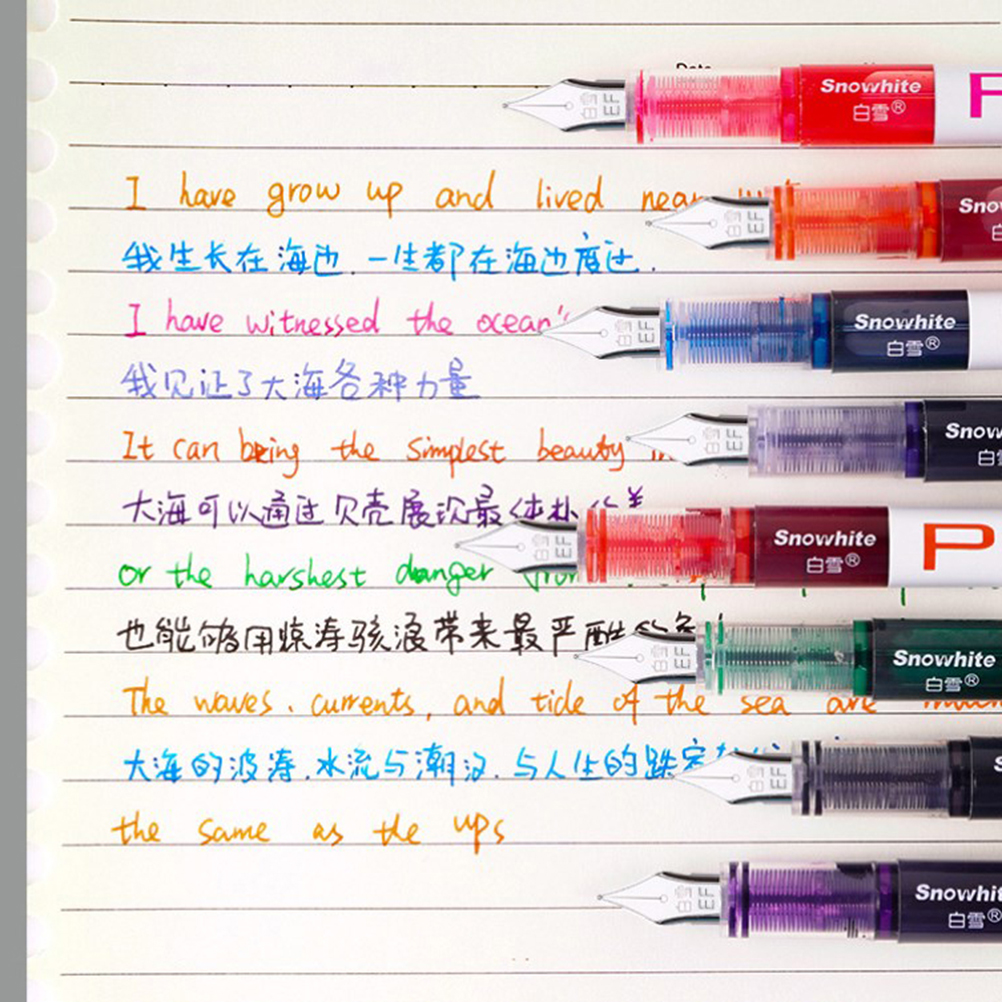 Snowhite
白雪®
I have grow up and lived near
Snow
我生长在海边.一生都在海边度过.
I have witnessed the ocean's
Snowhite
白雪®
我见证了大海各种力量
It can being the simplest beauty in
Snow
白雪
大海可以通过贝壳展次最体朴的美
Snowhite
白雪®
P
or the harshest danger from
也能够用惊涛骇浪带来最严酷的危
Snowhite
白雪®
The waves. currents, and tide of the sea are
大海的波涛.水流与潮汐.与人生的跌宕
the same as the ups
Snowhite
白雪®
EF
EF
EF
EF
EF
EF
EF
EF